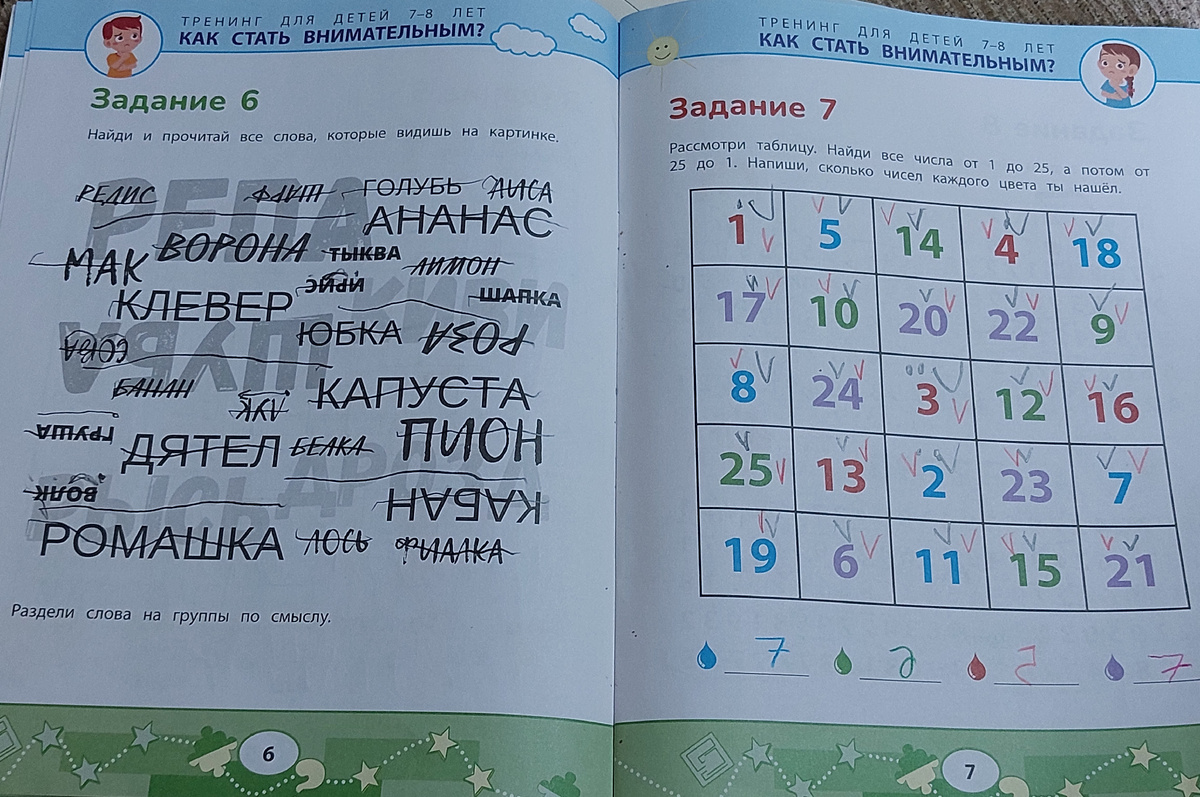 ТРЕНИНГ ДЛЯ ДЕТЕЙ 7–8 ЛЕТ
КАК СТАТЬ ВНИМАТЕЛЬНЫМ?
Задание 6
Найди и прочитай все слова, которые видишь на картинке.
РЕПА
РЕДИС ГОЛУБЬ ЛИСА
АНАНАС
МАК ВОРОНА ТЫКВА ЛИМОН
КИВИ
КЛЕВЕР ИРИС ШАПКА
ШУБА
СОВА ЮБКА РОЗА
БАНАН ЛУК КАПУСТА
ГРУША ДЯТЕЛ БЕЛКА ПИОН
ВОЛК КАБАН
РОМАШКА ЛОСЬ ФИАЛКА
Раздели слова на группы по смыслу.
6
ТРЕНИНГ ДЛЯ ДЕТЕЙ 7–8 ЛЕТ
КАК СТАТЬ ВНИМАТЕЛЬНЫМ?
Задание 7
Рассмотри таблицу. Найди все числа от 1 до 25, а потом от
25 до 1. Напиши, сколько чисел каждого цвета ты нашёл.
1 5 14 4 18
17 10 20 22 9
8 24 3 12 16
25 13 2 23 7
19 6 11 15 21
7 6 5 7
7